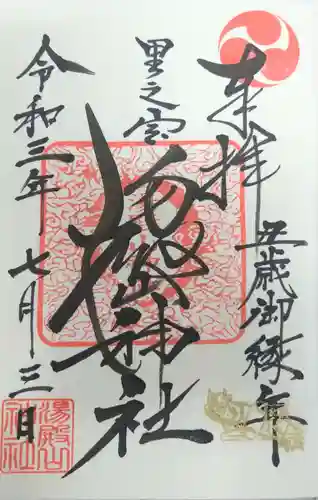 来拝
丑歳御縁年
里之宮
湯殿山神社
令和三年七月三日
湯殿山
神社